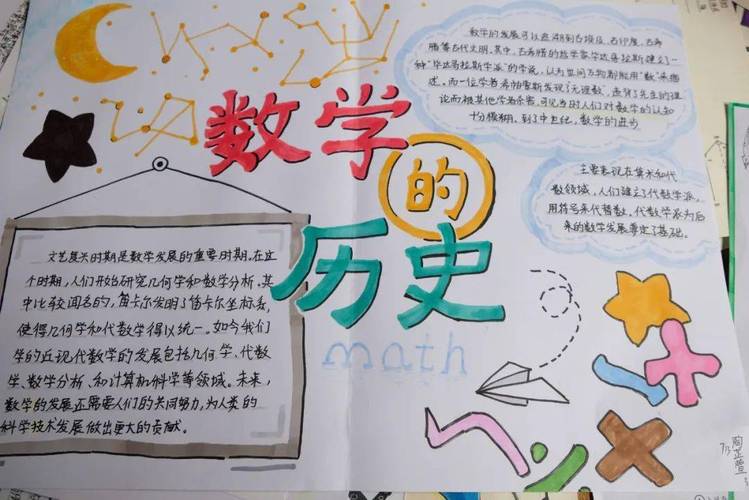 数学
的
历史
math
数学的发展可以追溯到古埃及、古印度、古希
腊等古代文明。其中，古希腊的哲学家毕达哥拉斯建立了一
种“毕达哥拉斯学派”的学说，认为世间万物都能用“数”来描
述。而一位学者希帕索斯发现了无理数，违背了先生的理
论而被其他学者杀害，可见当时人们对数学的认知
十分模糊。到了中世纪，数学的进步
主要表现在算术和代
数领域，人们建立了代数学派，
用符号来代替数，代数学派为后
来的数学发展奠定了基础。
文艺复兴时期是数学发展的重要时期。在这
个时期，人们开始研究几何学和数学分析。其
中比较闻名的，笛卡尔发明了笛卡尔坐标系，
使得几何学和代数学得以统一。如今我们
学的近现代数学的发展包括几何学、代数
学、数学分析、和计算机科学等领域。未来，
数学的发展还需要人们的共同努力，为人类的
科学技术发展做出更大的贡献。